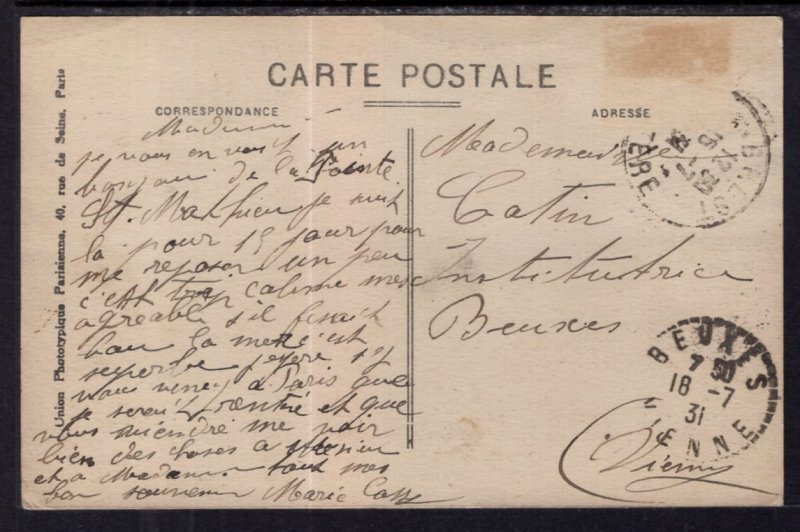 CARTE POSTALE
CORRESPONDANCE
ADRESSE
Union Phototypique Parisienne, 40, rue de Seine, Paris
je vous envoi un
bonjour de la Pointe
St. Mathieu je suit
la pour 15 jour pour
me reposer un peu
c'est trop calime mes
agreable s'il fesait
bau la mer c'est
superbe
vous venez a Paris que
je serait rentre et que
vous viendre me voir
bien des choses a
et a Madame tout mes
bon souvenir Marie
Catin
Institutrice
Beuxes
Vienne
BREST
GARE
BEUXES
7 30
18 -7
31
VIENNE